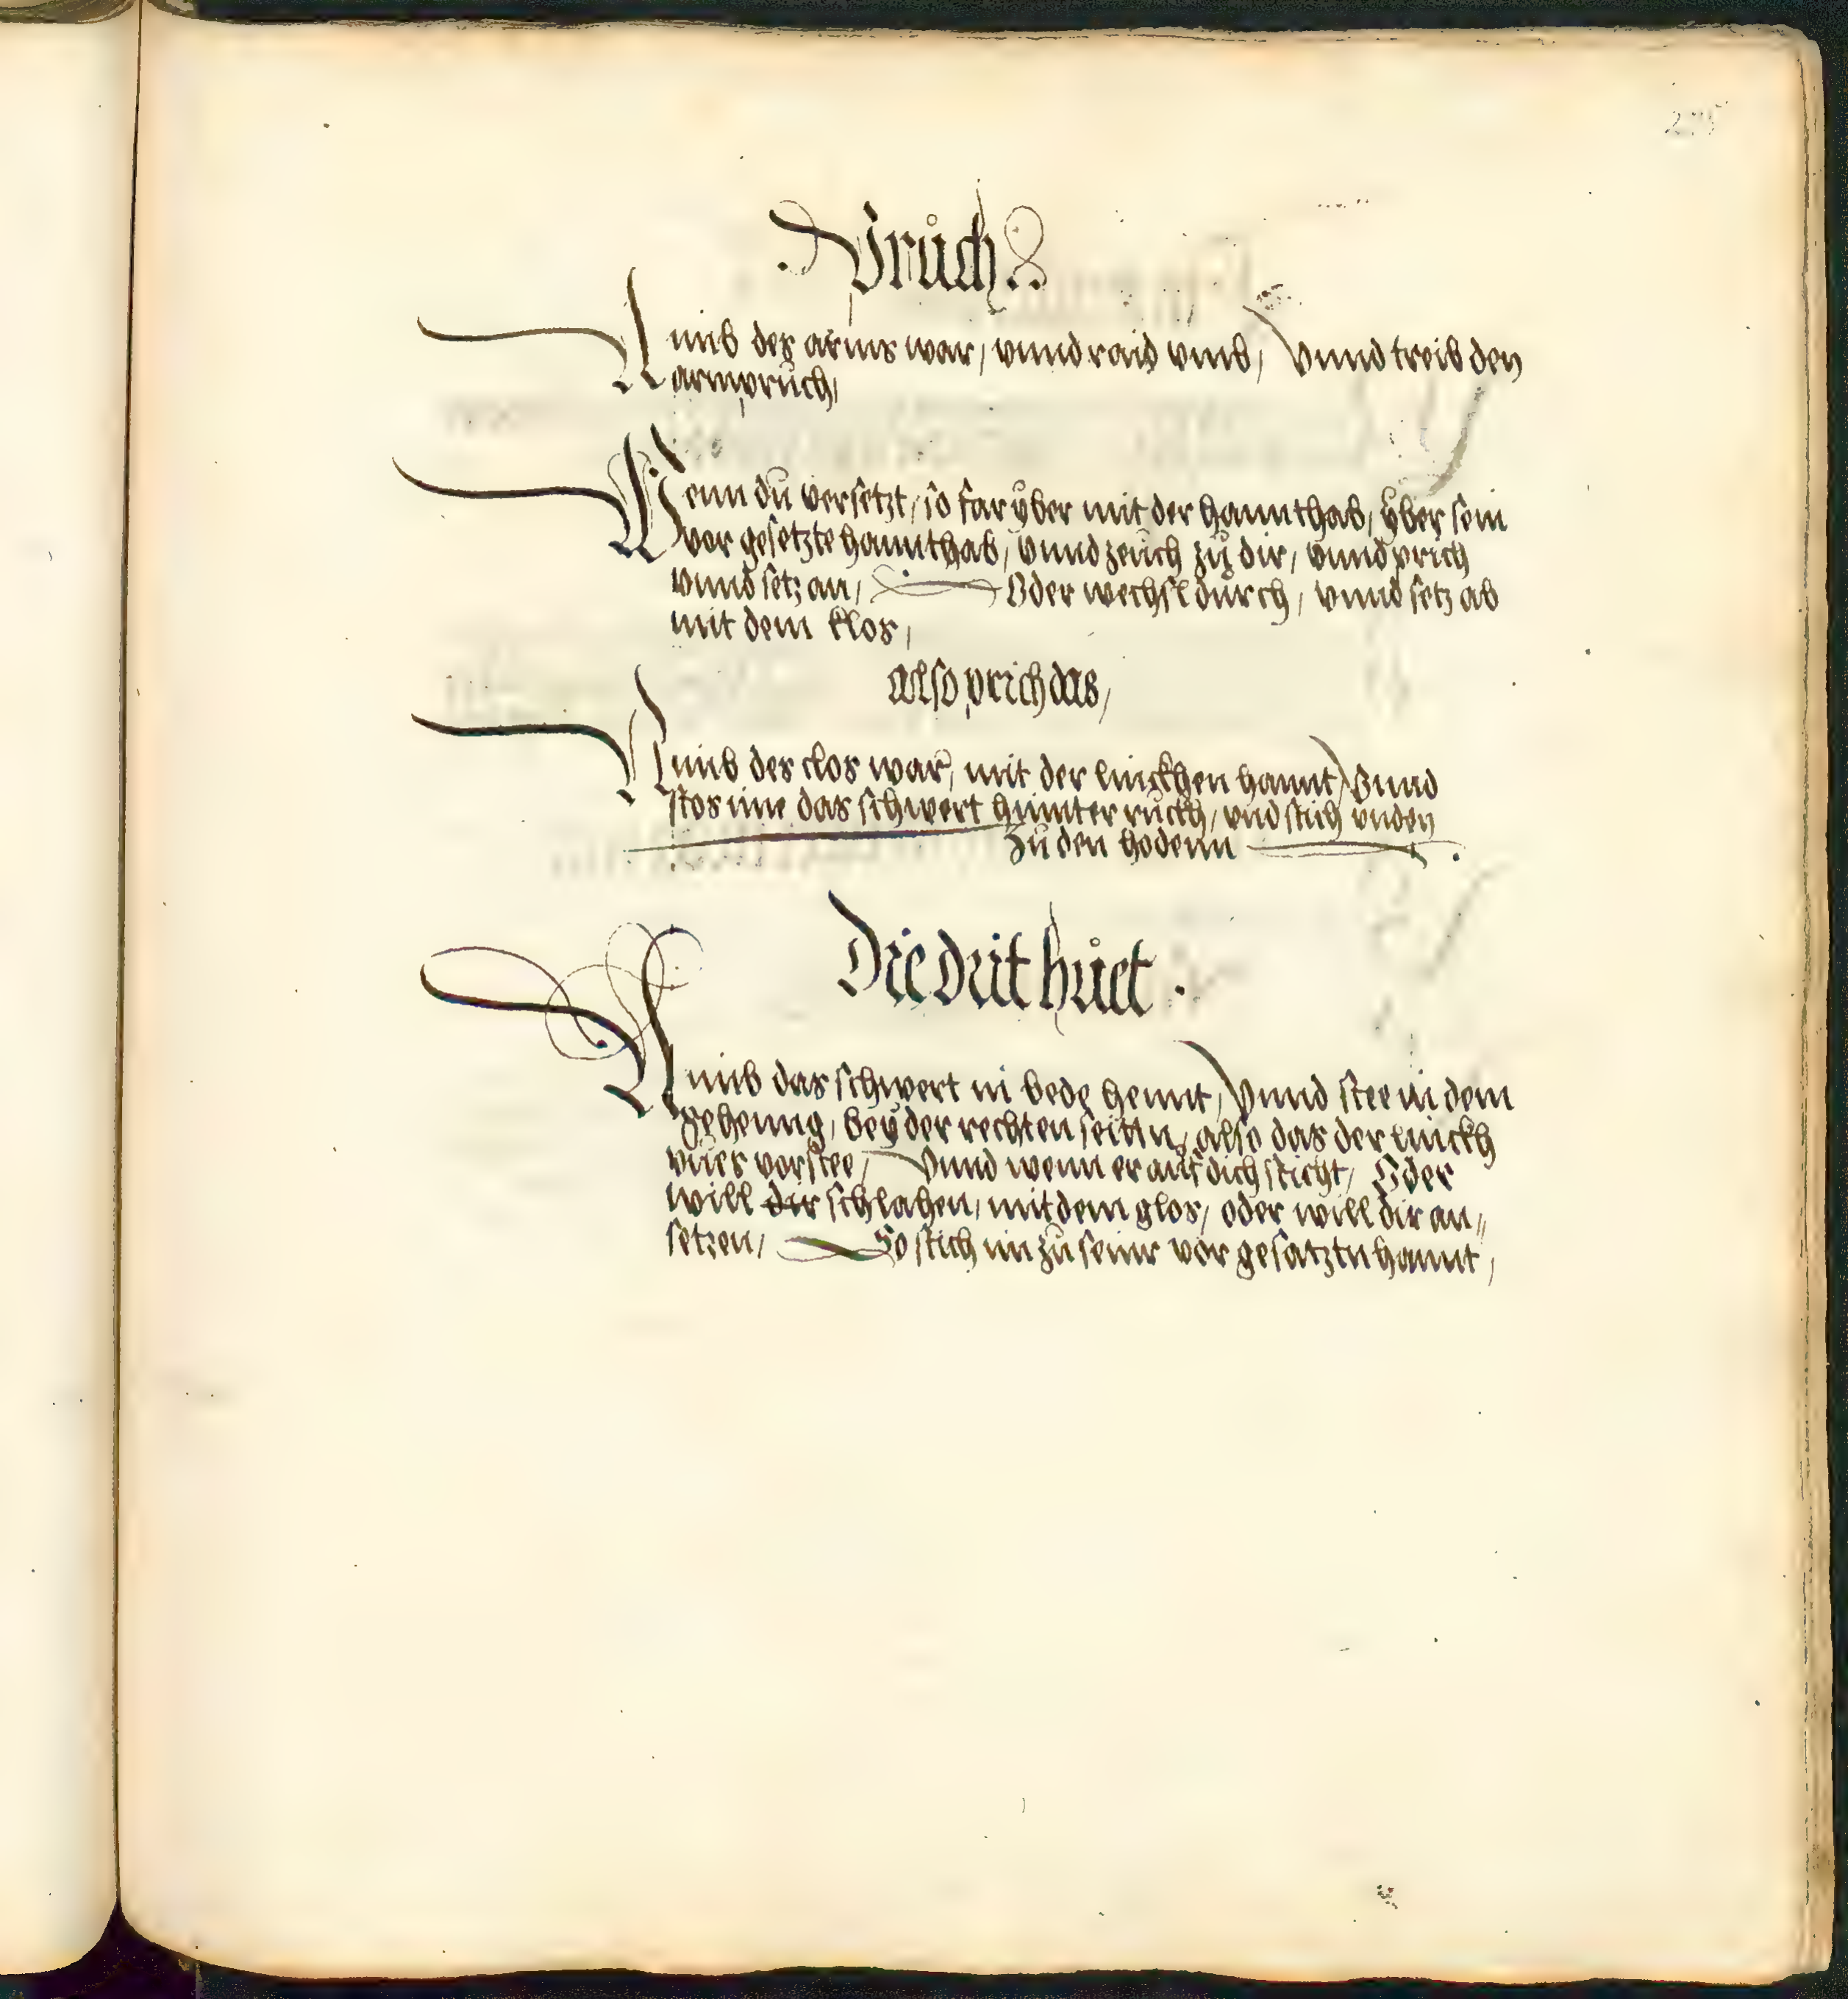 Pruch
Nimb des arms war, vnnd raid vmb, Vnnd treib den
armpruch,
Wenn du versetzt, so far yber mit der hannthab, yber sein
vor gesetzte hannthab, vnnd zeuch zu dir, vnnd prich
vnnd setz an, Oder wechsl durch, vnnd setz ab
mit dem klos,
Also prich das,
Nimb des clos war, mit der linckhen hannt, Vnnd
stos ime das schwert hinnter ruckh, vnd stich vnden
Zu den hodenn
Die drit huet
Nimb das schwert in bede hennt, Vnnd stee in dem
gehenng, bey der rechten seittn, also das der linckh
vues vorstee, Vnnd wenn er auf dich sticht, Oder
will dir schlahen, mit dem glos, oder will dir an„
setzen, So stich im zu seinr vor gesatztn hannt,